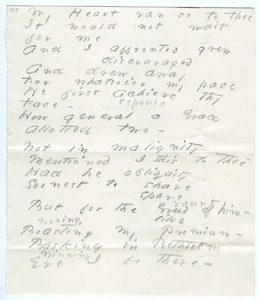 My Heart ran so to thee
It would not wait
for me
And I affronted grew
discouraged
And drew away
For whatsoe'er my pace
He first achieve thy
Face -
espouse
How general a Grace
Allotted two -
Not in malignity
Mentioned I this to thee -
Had he obliquity
Soonest to share
spare
But for the Greed of him -
urgent
moving
like
Boasting my Premium -
Basking in Bethleem
winning
Ere I be there -